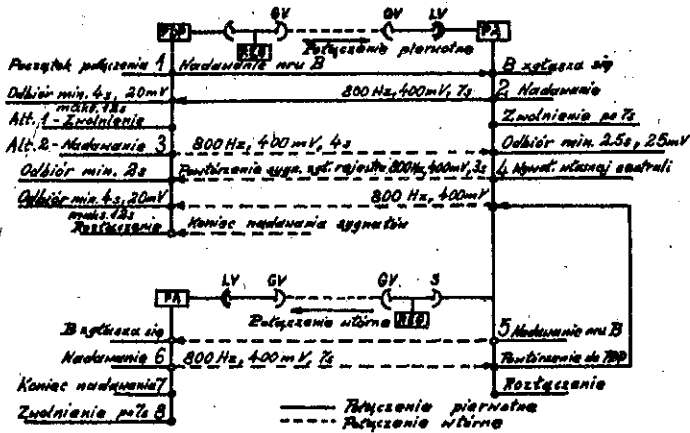 GV GV LV
PDP PA
REG
Połączenie pierwotne
Początek połączenia 1 Nadawanie nru B B zgłasza się
Odbiór min. 4s, 20mV 800 Hz, 400 mV, 7s 2 Nadawanie
maks. 12s
Alt. 1 - Zwolnienie Zwolnienie po 7s
Alt. 2 - Nadawanie 3 800 Hz, 400 mV, 4s Odbiór min. 2.5s, 25mV
Odbiór min. 2s Powtórzenie sygn. zgł. rejestru 800Hz, 400mV, 3s 4 Wywoł. własnej centrali
Odbiór min. 4s, 20mV 800 Hz, 400mV
maks. 12s
Rozłączenie Koniec nadawania sygnałów
LV GV GV S
PA
REG
Połączenie wtórne
B zgłasza się 5 Nadawanie nru B
Nadawanie 6 800 Hz, 400 mV, 7s Powtórzenie do PDP
Koniec nadawania 7 Rozłączenie
Zwolnienie po 7s 8
Połączenie pierwotne
Połączenie wtórne